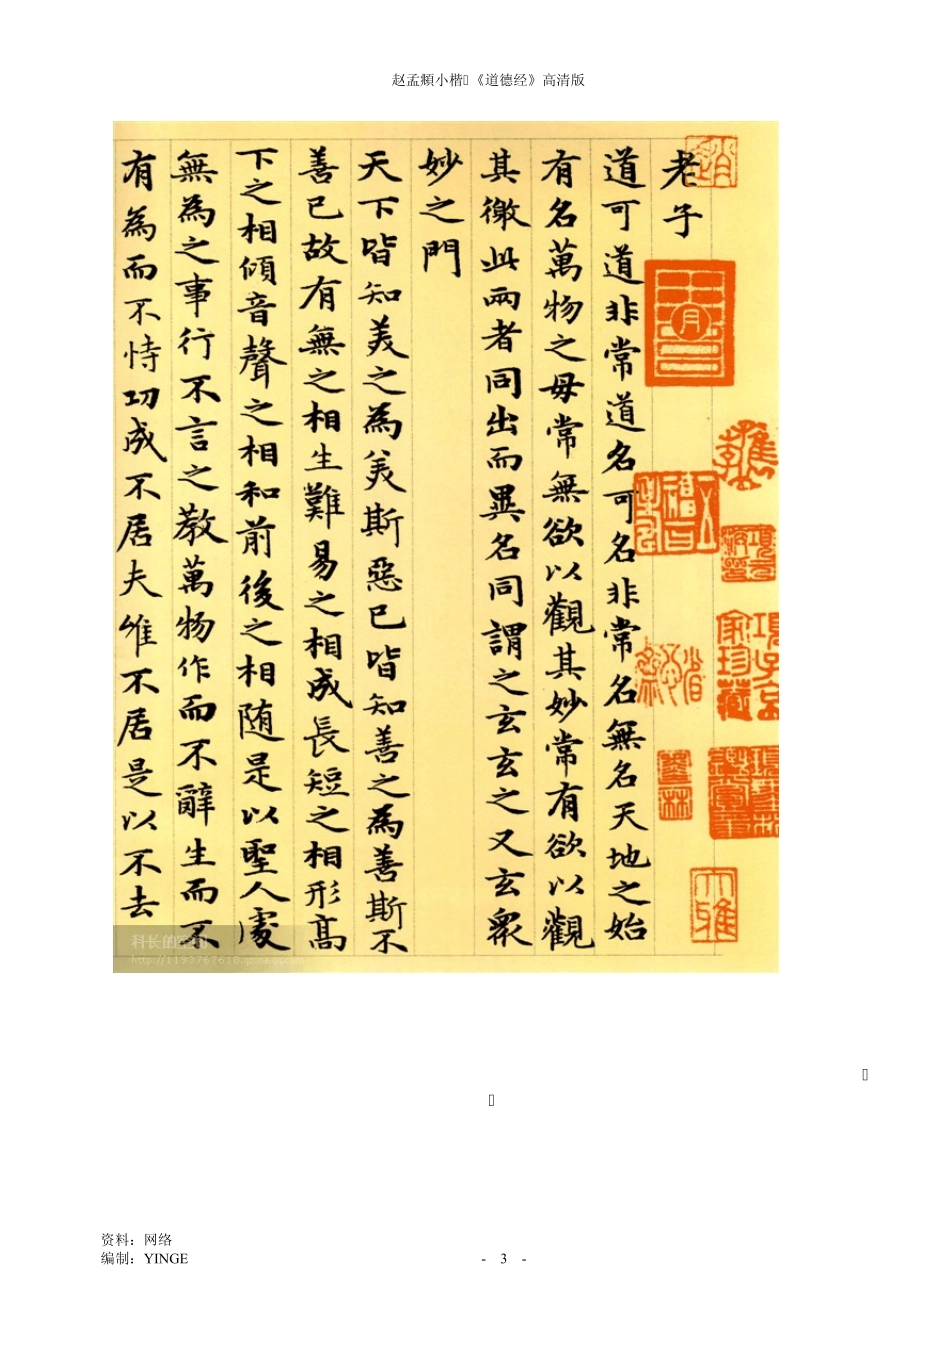 赵孟頫小楷 《道德经》高清版
老子
道可道非常道名可名非常名無名天地之始
有名萬物之母常無欲以觀其妙常有欲以觀
其徼此兩者同出而異名同謂之玄玄之又玄衆
妙之門
天下皆知美之為美斯惡已皆知善之為善斯不
善已故有無之相生難易之相成長短之相形高
下之相傾音聲之相和前後之相随是以聖人處
無為之事行不言之教萬物作而不辭生而不
有為而不恃功成不居夫惟不居是以不去
科长的空间
资料：网络
编制：YINGE
- 3 -